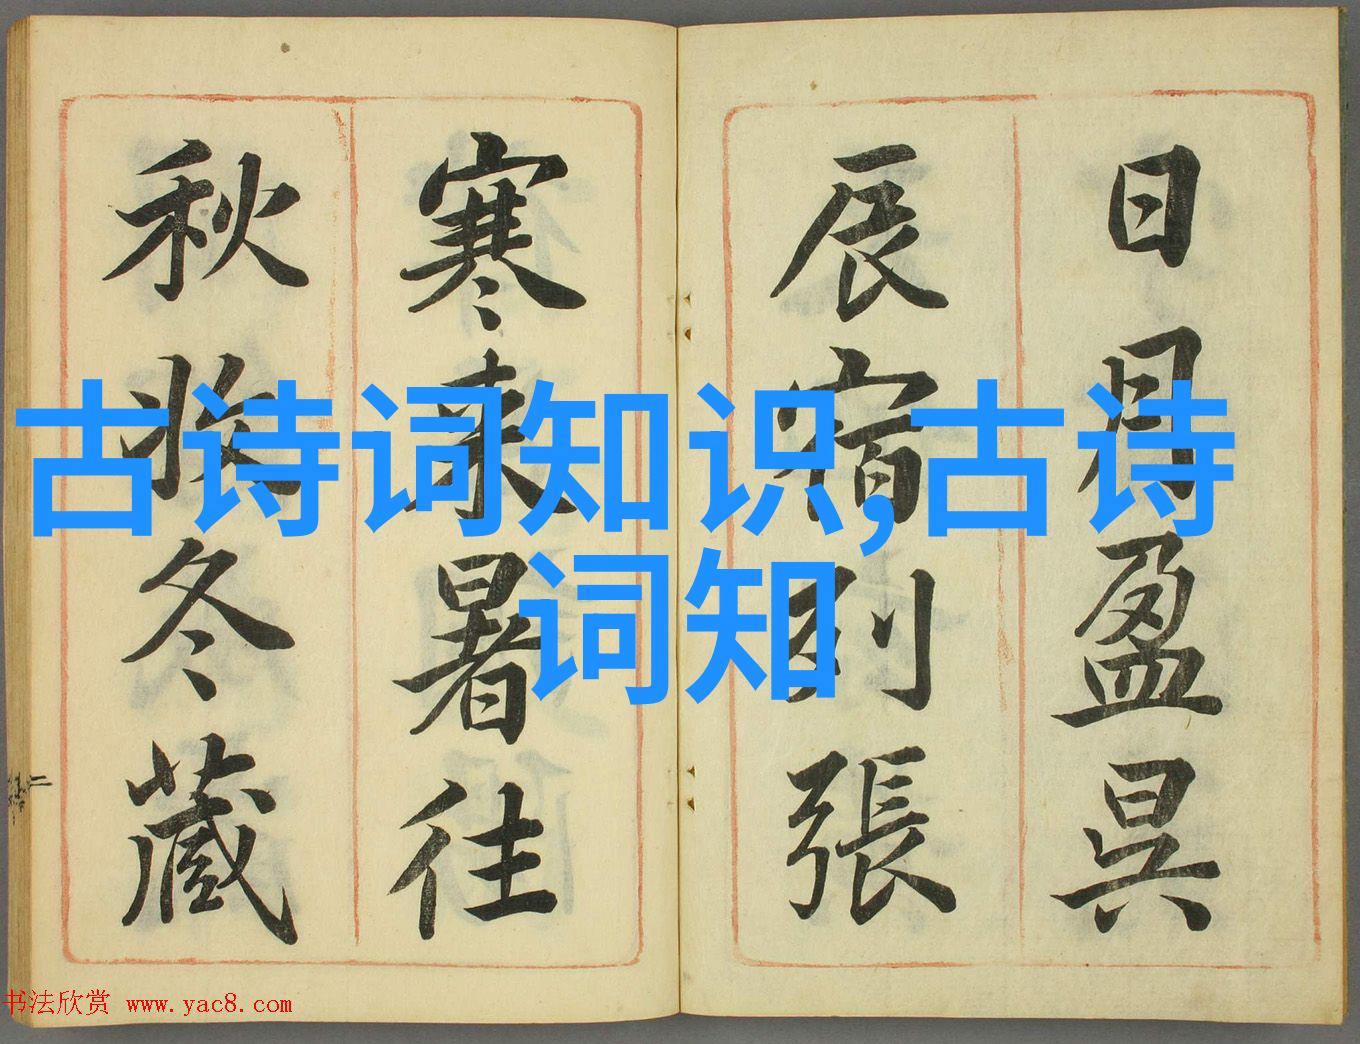 日月盈昃
辰宿列張
寒来暑往
秋收冬藏
古诗词知识,古诗
词知
书法欣赏 www.yac8.com